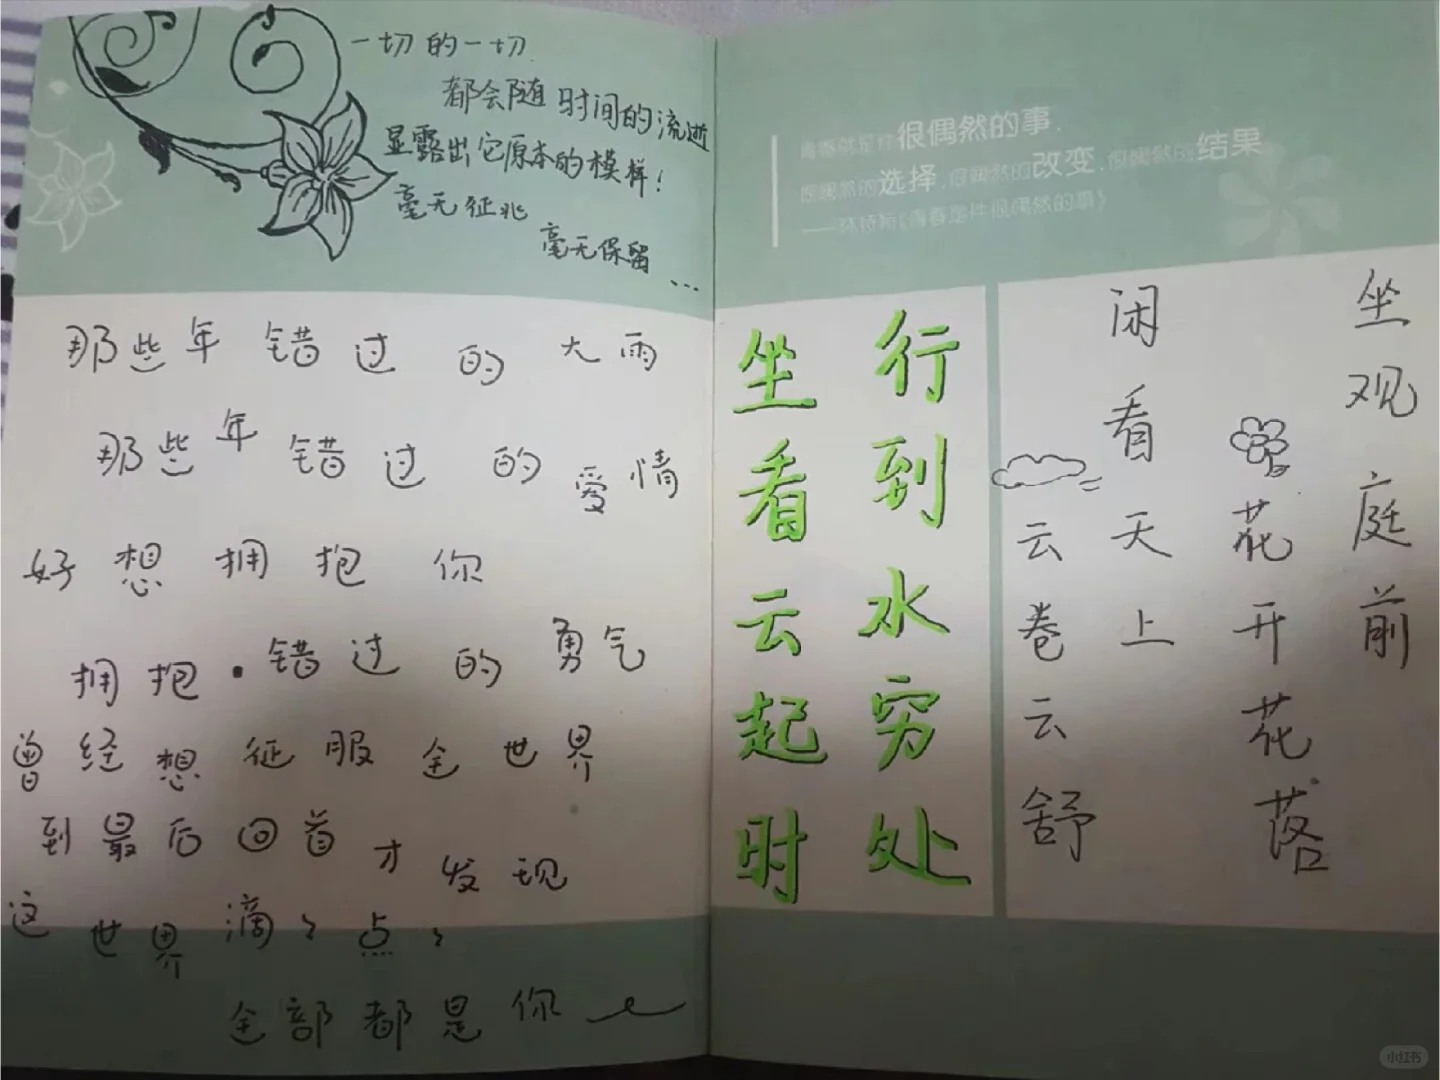 一切的一切
都会随时间的流逝
显露出它原本的模样!
毫无征兆
毫无保留...
那些年错过的大雨
那些年错过的爱情
好想拥抱你
拥抱·错过的勇气
曾经想征服全世界
到最后回首才发现
这世界滴々点々
全部都是你
青春就是件很偶然的事,
很偶然的选择,很偶然的改变,很偶然的结果
《青春是件很偶然的事》
坐观庭前
花开花落
闲看天上
云卷云舒
行到水穷处
坐看云起时
小红书